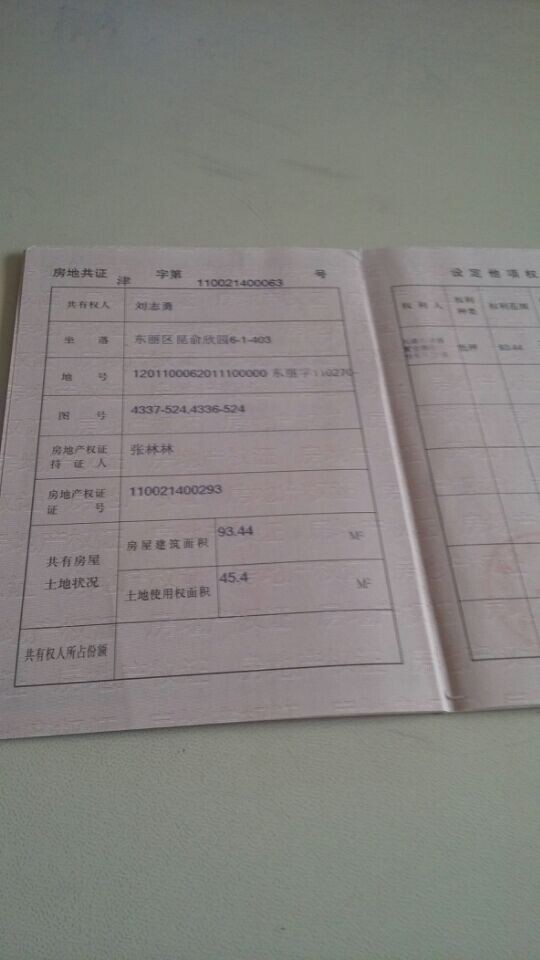 房地共证 津 字第 110021400063 号
共有权人 刘志勇
坐落 东丽区昆俞欣园6-1-403
地号 1201100062011100000 东丽字110270-
图号 4337-524.4336-524
房地产权证
持证人 张林林
房地产权证
证号 110021400293
共有房屋
土地状况
房屋建筑面积 93.44 M²
土地使用权面积 45.4 M²
共有权人所占份额
设定他项权
权利人 权利
种类 权利范围
抵押 93.44